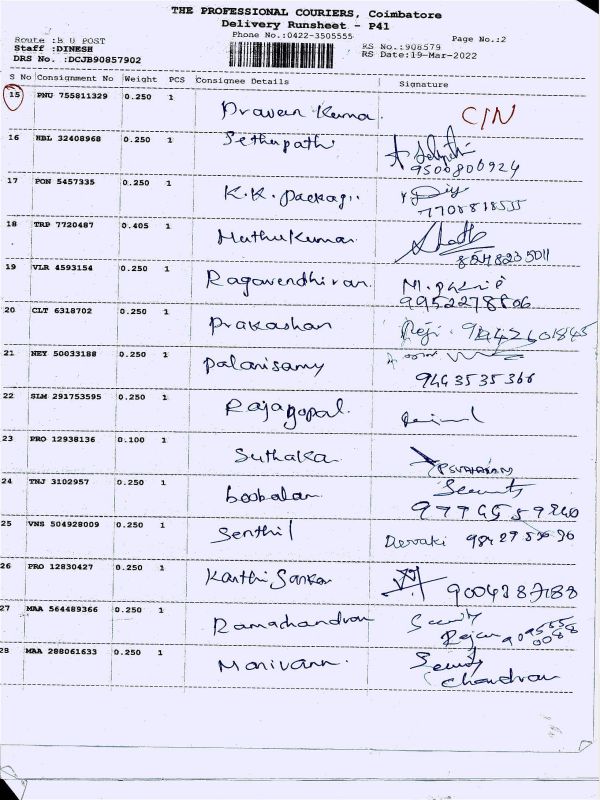 THE PROFESSIONAL COURIERS, Coimbatore
Delivery Runsheet - P41
Phone No.:0422-3505555
Page No.:2
Route :B U POST
Staff :DINESH
RS No.:908579
DRS No. :DCJB90857902
RS Date:19-Mar-2022
S No Consignment No Weight PCS Consignee Details Signature
15 PNU 755811329 0.250 1 Praveen Kuma. C/N
16 HBL 32408968 0.250 1 Sethupathi
9500800924
17 PON 5457335 0.250 1 K.K. Packagi..
7708818555
18 TRP 7720487 0.405 1 Muthukumar
19 VLR 4593154 0.250 1 Ragavendhiran.
9952278806
20 CLT 6318702 0.250 1 Prakashan Reji.
21 NEY 50033188 0.250 1 Palanisamy
9443535366
22 SLM 291753595 0.250 1 Rajagopal.
23 PRO 12938136 0.100 1 Suthakar
24 TNJ 3102957 0.250 1 boobalan Security
25 VNS 504928009 0.250 1 Senthil Devaki
26 PRO 12830427 0.250 1 Karthi Sankar
27 MAA 564489366 0.250 1 Ramachandran Security
Rajan
28 MAA 288061633 0.250 1 Manivann. Security
Chandran